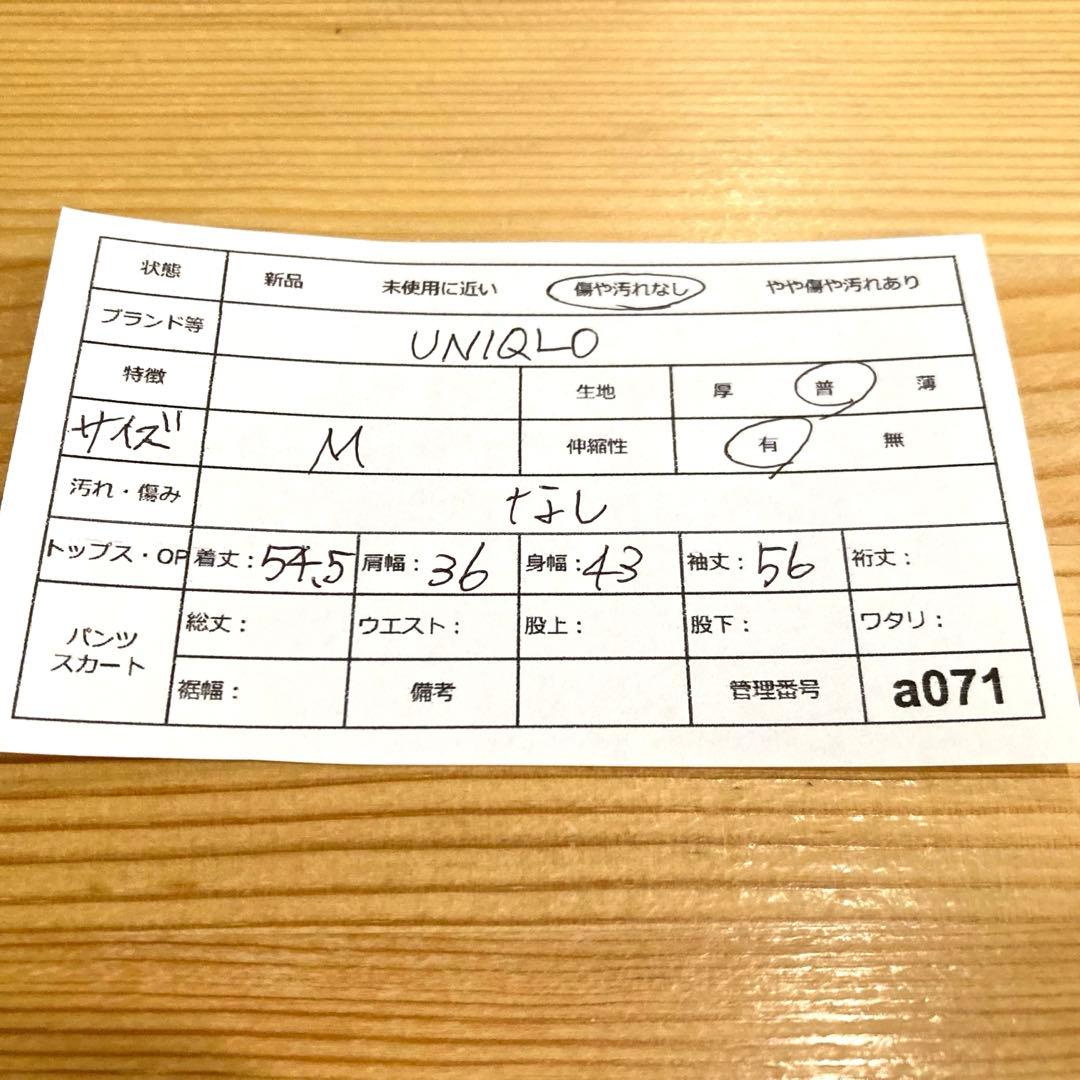 状態 新品 未使用に近い 傷や汚れなし やや傷や汚れあり
ブランド等 UNIQLO
特徴 生地 厚 普 薄
サイズ M 伸縮性 有 無
汚れ・傷み なし
トップス・OP 着丈：54.5 肩幅：36 身幅：43 袖丈：56 裄丈：
パンツ スカート 総丈： ウエスト： 股上： 股下： ワタリ：
裾幅： 備考 管理番号 a071